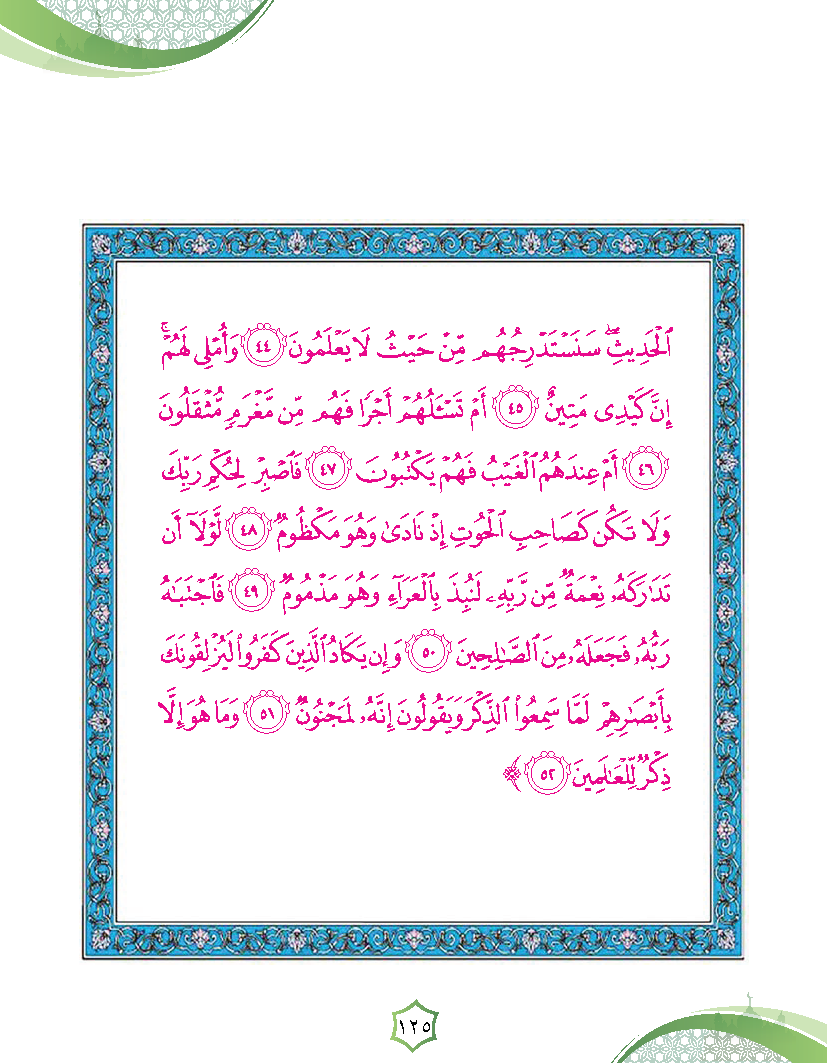 ٱلْحَدِيثِۖ سَنَسْتَدْرِجُهُم مِّنْ حَيْثُ لَا يَعْلَمُونَ ٤٤ وَأُمْلِى لَهُمْۚ
إِنَّ كَيْدِى مَتِينٌ ٤٥ أَمْ تَسْـَٔلُهُمْ أَجْرًا فَهُم مِّن مَّغْرَمٍ مُّثْقَلُونَ
٤٦ أَمْ عِندَهُمُ ٱلْغَيْبُ فَهُمْ يَكْتُبُونَ ٤٧ فَٱصْبِرْ لِحُكْمِ رَبِّكَ
وَلَا تَكُن كَصَاحِبِ ٱلْحُوتِ إِذْ نَادَىٰ وَهُوَ مَكْظُومٌ ٤٨ لَّوْلَآ أَن
تَدَٰرَكَهُۥ نِعْمَةٌ مِّن رَّبِّهِۦ لَنُبِذَ بِٱلْعَرَآءِ وَهُوَ مَذْمُومٌ ٤٩ فَٱجْتَبَـٰهُ
رَبُّهُۥ فَجَعَلَهُۥ مِنَ ٱلصَّـٰلِحِينَ ٥٠ وَإِن يَكَادُ ٱلَّذِينَ كَفَرُوا۟ لَيُزْلِقُونَكَ
بِأَبْصَـٰرِهِمْ لَمَّا سَمِعُوا۟ ٱلذِّكْرَ وَيَقُولُونَ إِنَّهُۥ لَمَجْنُونٌ ٥١ وَمَا هُوَ إِلَّا
ذِكْرٌ لِّلْعَـٰلَمِينَ ٥٢ ﴾
١٢٥